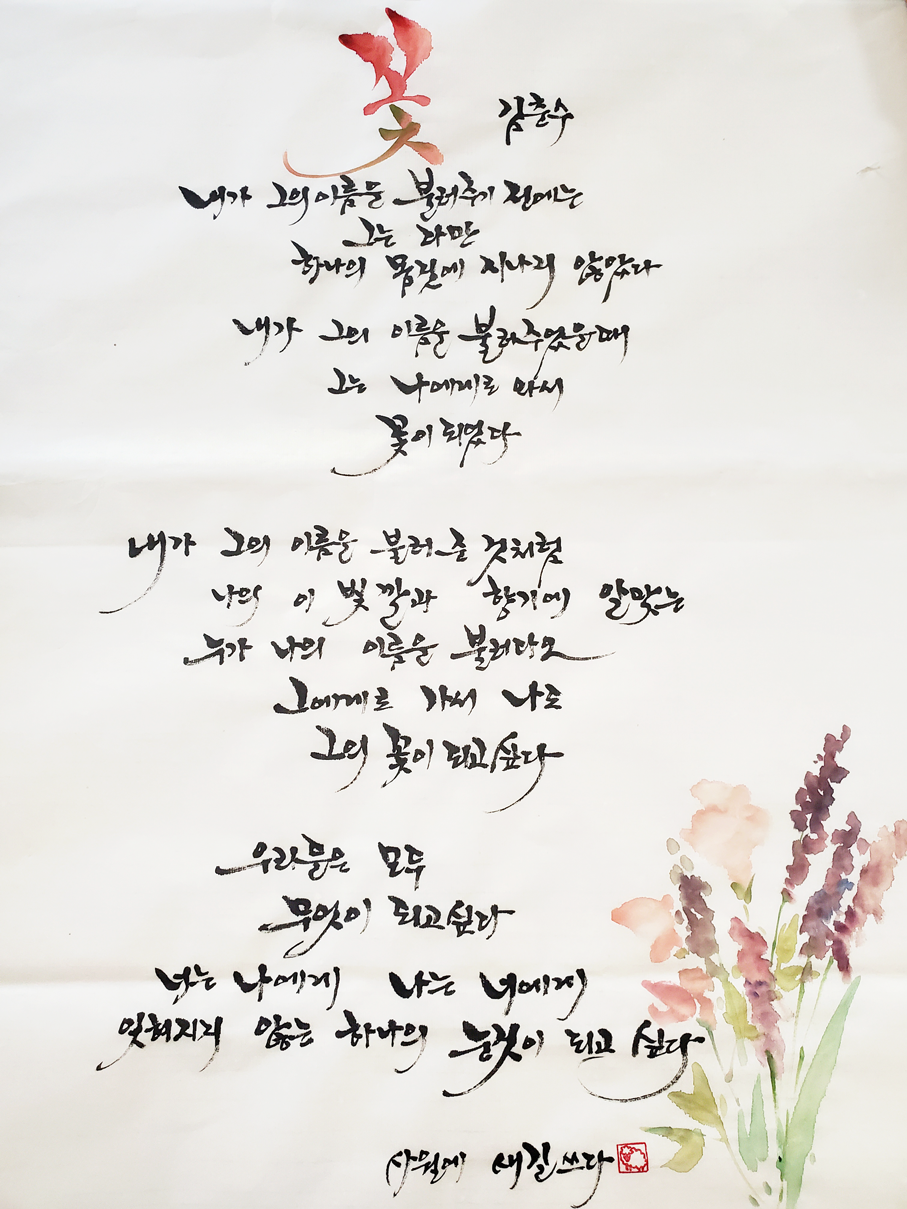 꽃
김춘수
내가 그의 이름을 불러주기 전에는
그는 다만
하나의 몸짓에 지나지 않았다
내가 그의 이름을 불러주었을때
그는 나에게로 와서
꽃이 되었다
내가 그의 이름을 불러준 것처럼
나의 이 빛깔과 향기에 알맞는
누가 나의 이름을 불러다오
그에게로 가서 나도
그의 꽃이 되고싶다
우리들은 모두
무엇이 되고싶다
너는 나에게 나는 너에게
잊혀지지 않는 하나의 눈짓이 되고 싶다
사월에 새길 쓰다